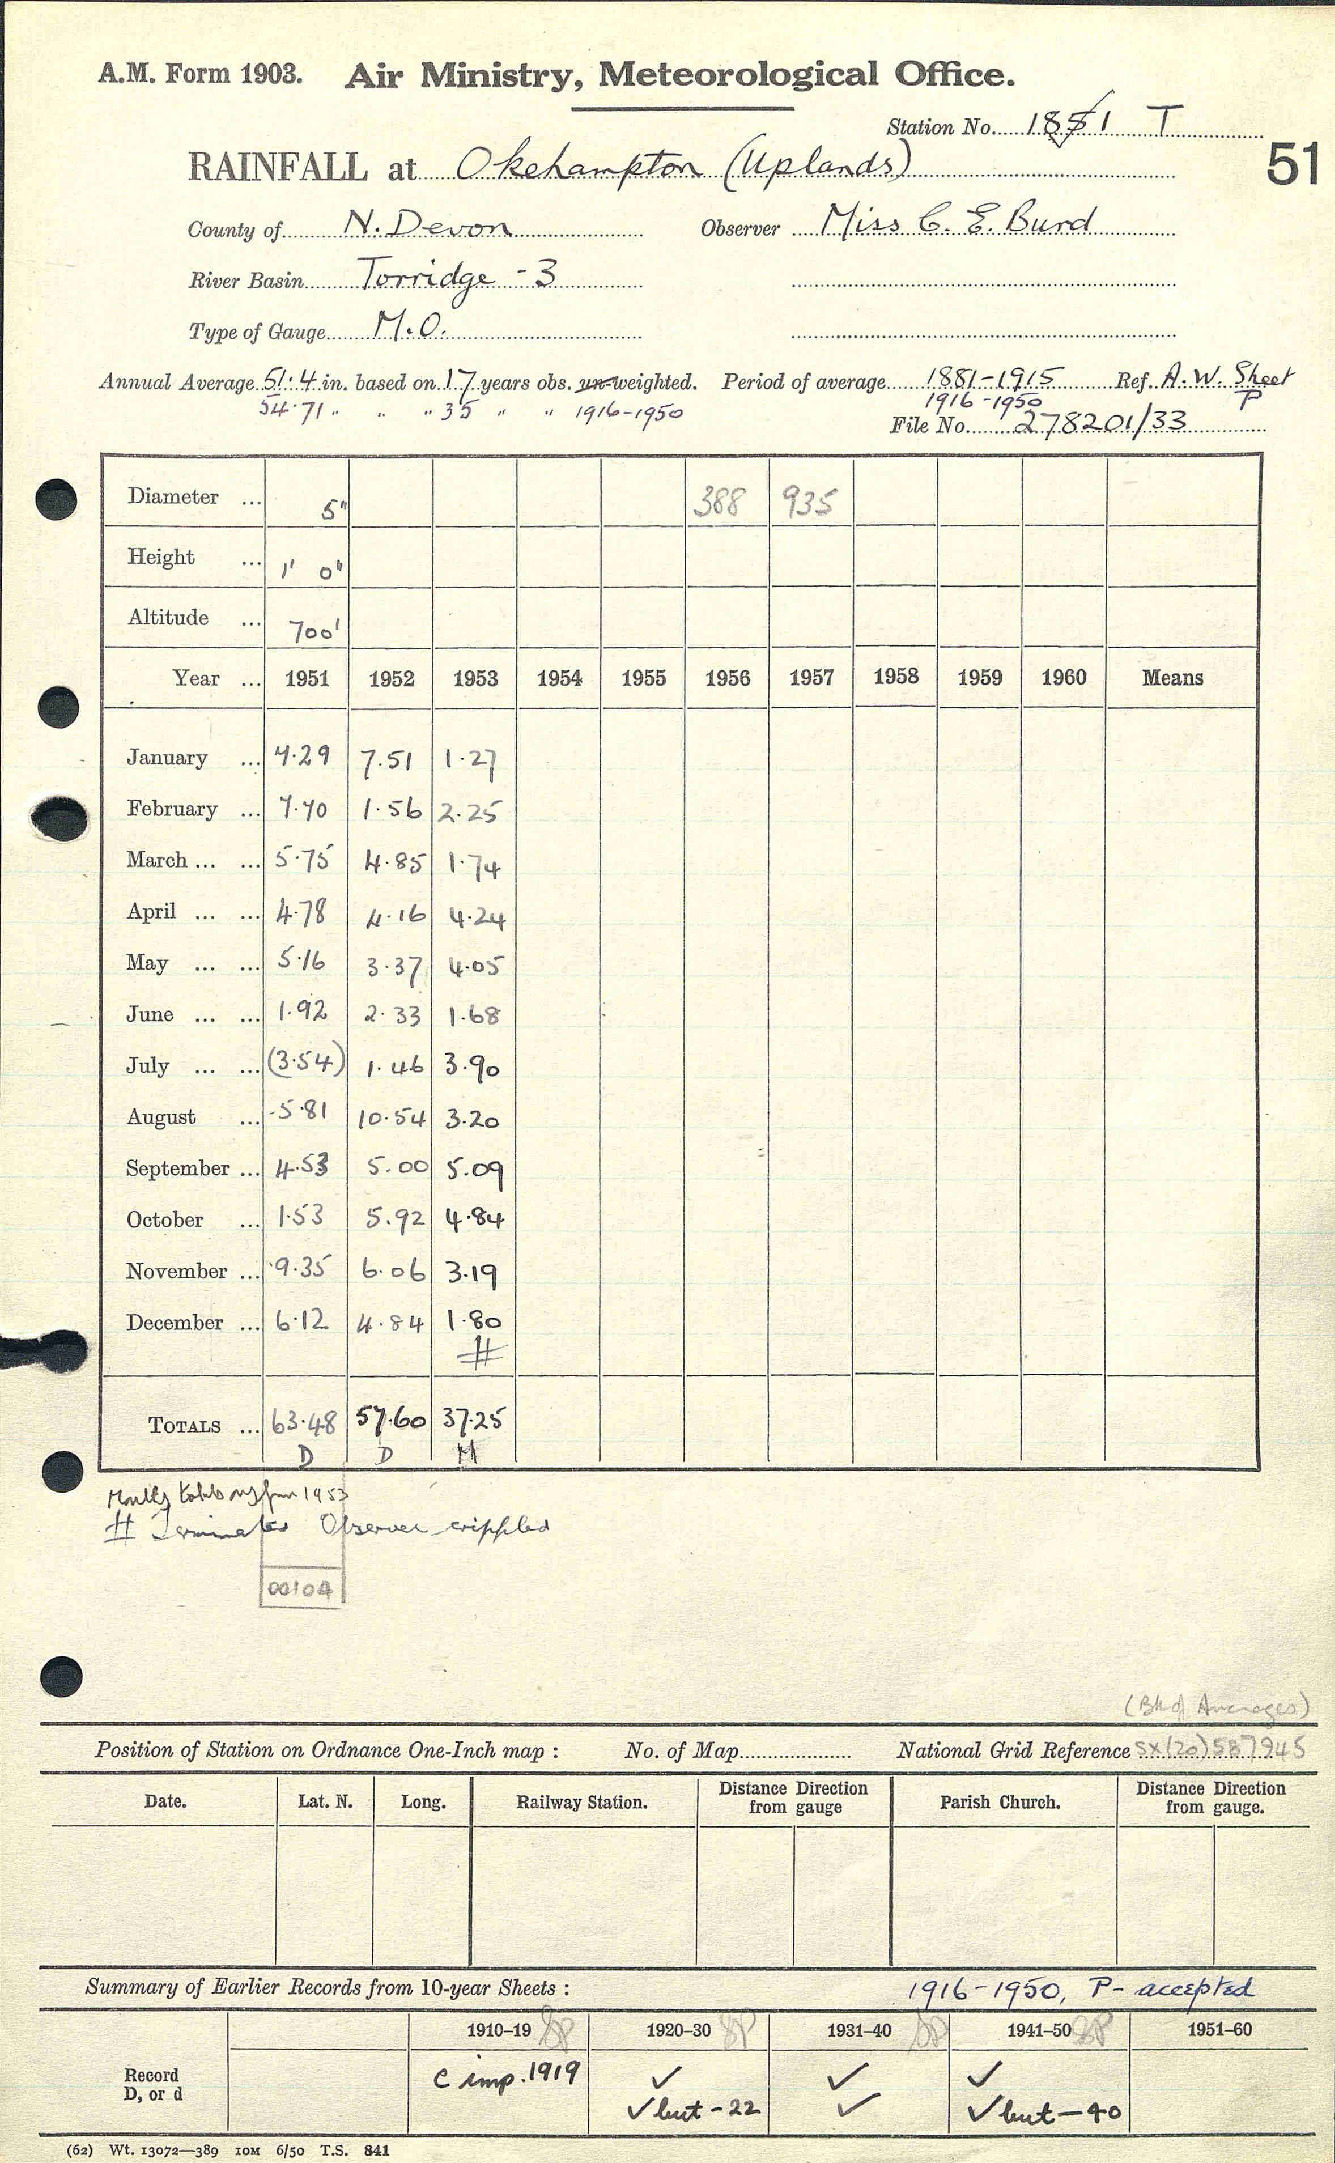 A.M. Form 1903. Air Ministry, Meteorological Office.
Station No. 1851 T
RAINFALL at Okehampton (Uplands)
51
County of N. Devon Observer Miss C. E. Burd
River Basin Torridge - 3
Type of Gauge M.O.
Annual Average 51.4 in. based on 17 years obs. un-weighted. Period of average 1881-1915 Ref. A.W. Sheet
54.71 " " " 35 " " 1916-1950 1916-1950 P
File No. 278201/33
Diameter ... 5" 388 935
Height ... 1' 0"
Altitude ... 700'
Year ... 1951 1952 1953 1954 1955 1956 1957 1958 1959 1960 Means
January ... 7.29 7.51 1.27
February ... 7.70 1.56 2.25
March ... ... 5.75 4.85 1.74
April ... ... 4.78 4.16 4.24
May ... ... 5.16 3.37 4.05
June ... ... 1.92 2.33 1.68
July ... ... (3.54) 1.46 3.90
August ... 5.81 10.54 3.20
September ... 4.53 5.00 5.09
October ... 1.53 5.92 4.84
November ... 9.35 6.06 3.19
December ... 6.12 4.84 1.80
#
TOTALS ... 63.48 57.60 37.25
D D M
Monthly totals only from 1953
# Terminates Observer crippled
00104
(Bk of Averages)
Position of Station on Ordnance One-Inch map : No. of Map National Grid Reference SX(20)587945
Date. Lat. N. Long. Railway Station. Distance Direction from gauge Parish Church. Distance Direction from gauge.
Summary of Earlier Records from 10-year Sheets : 1916-1950, P- accepted
1910–19 SP 1920–30 SP 1931–40 SP 1941–50 SP 1951–60
Record D, or d C imp. 1919 ✓ ✓ ✓
✓ but - 22 ✓ ✓ but - 40
(62) Wt. 13072—389 10M 6/50 T.S. 841